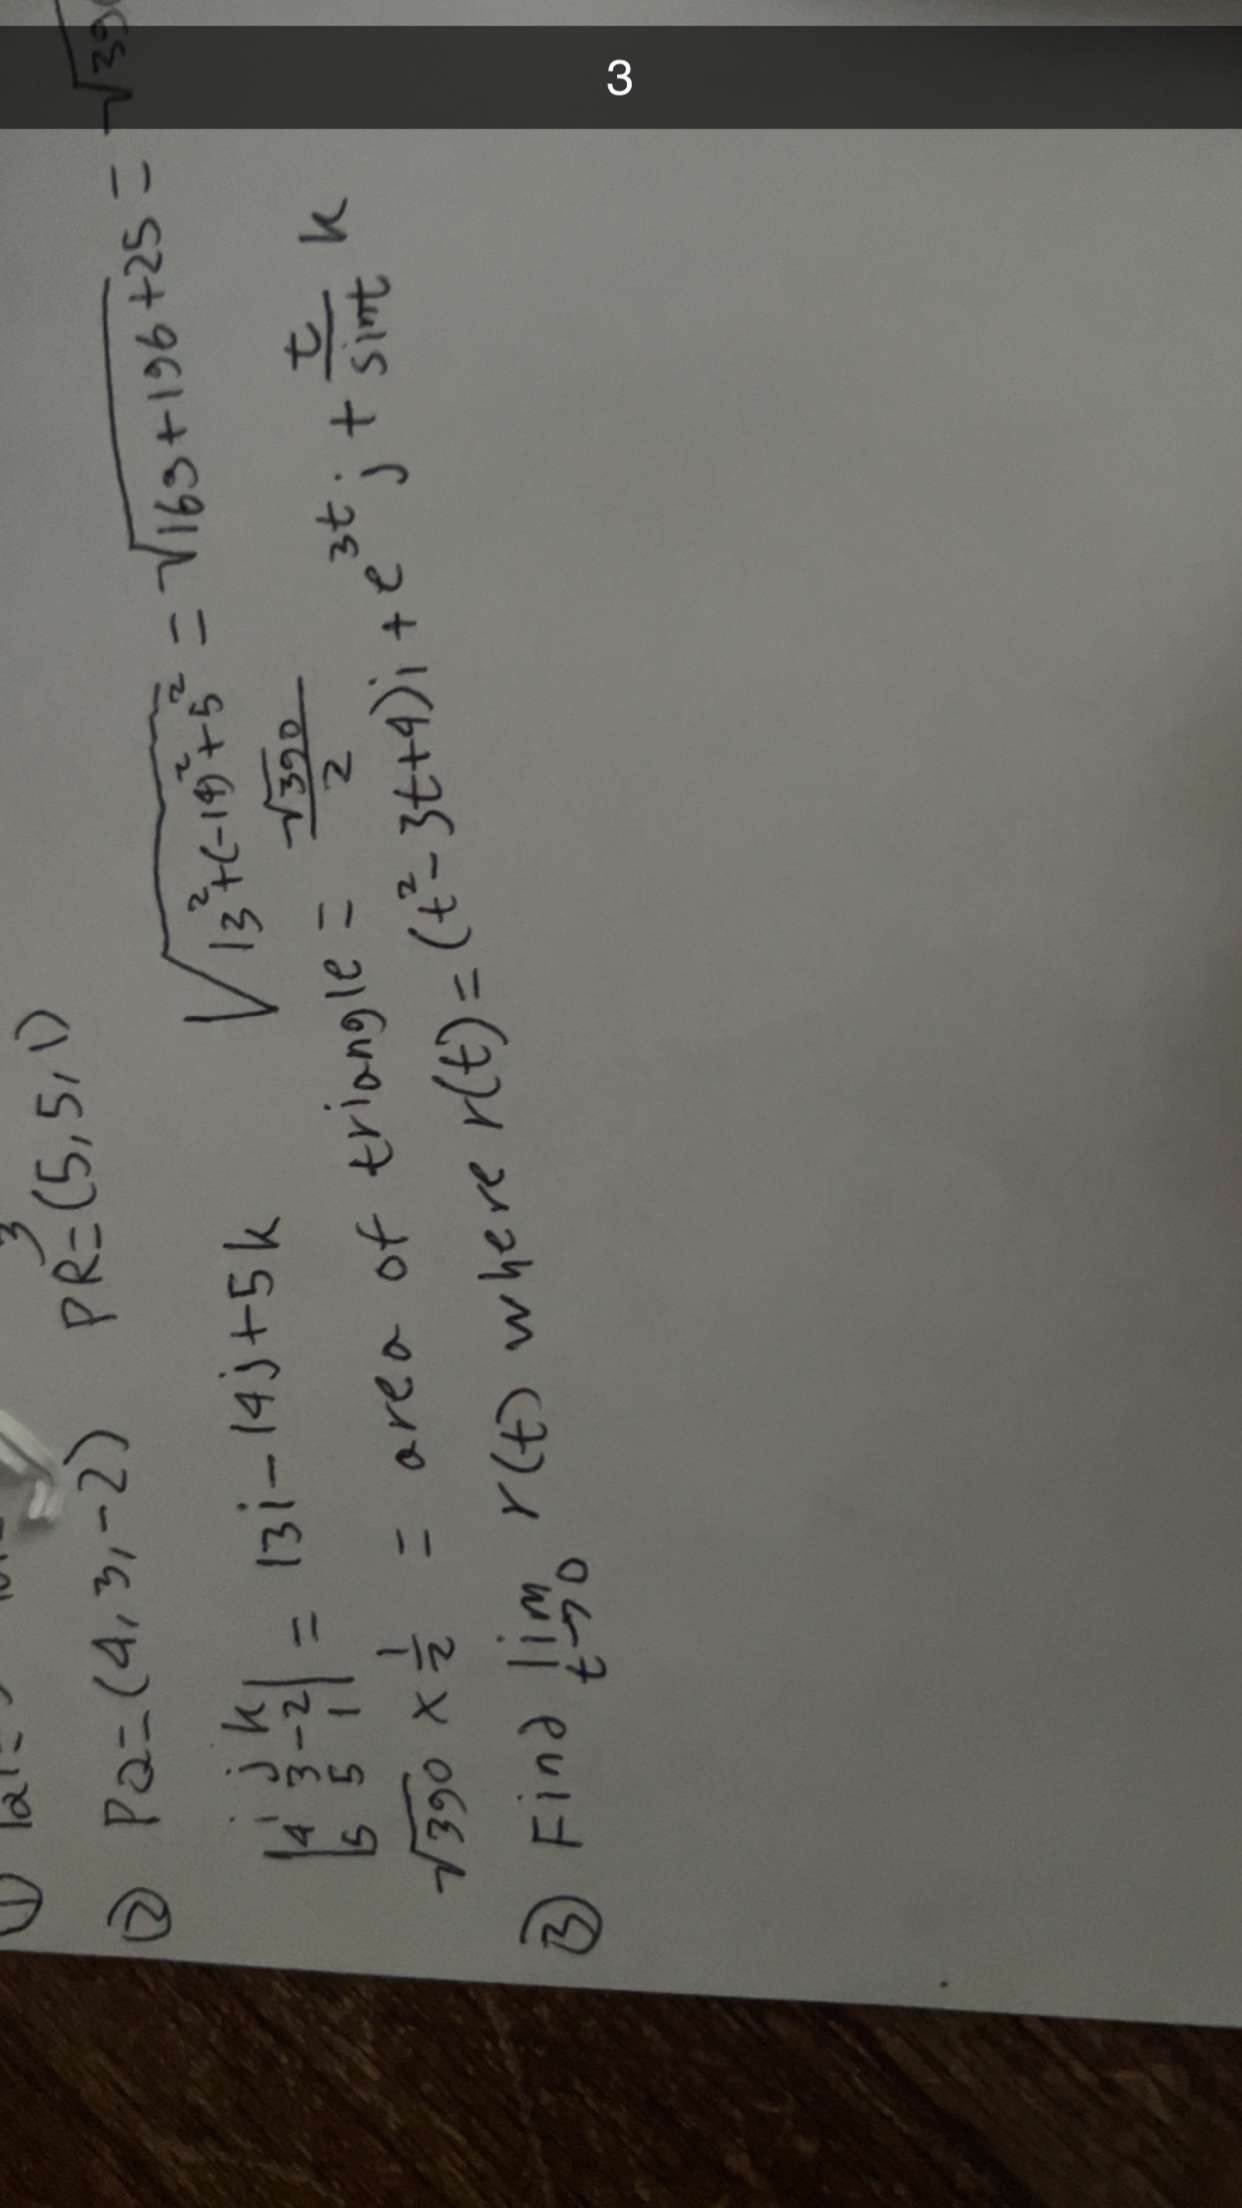 3
① |a|=
② PQ=(4,3,-2) PR=(5,5,1)
|i j k|
|4 3 -2| = 13i-14j+5k √13²+(-14)²+5² = √169+196+25 = √39
|5 5 1|
√390 × 1/2 = area of triangle = √390/2
③ Find lim t→0 r(t) where r(t)=(t²-3t+4)i+e^3t j + t/sint k